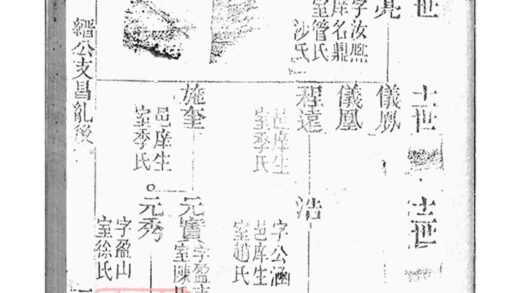 世
字汝熙
庠名鼎
室管氏
沙氏
十一世
儀鳳
儀凰
程達
邑庠生
室李氏
施奎
邑庠生
室季氏
世
浩
字公涵
邑庠生
室趙氏
元賓
字盈
室陳氏
元秀
字盈山
室徐氏
縉公支昌亂後